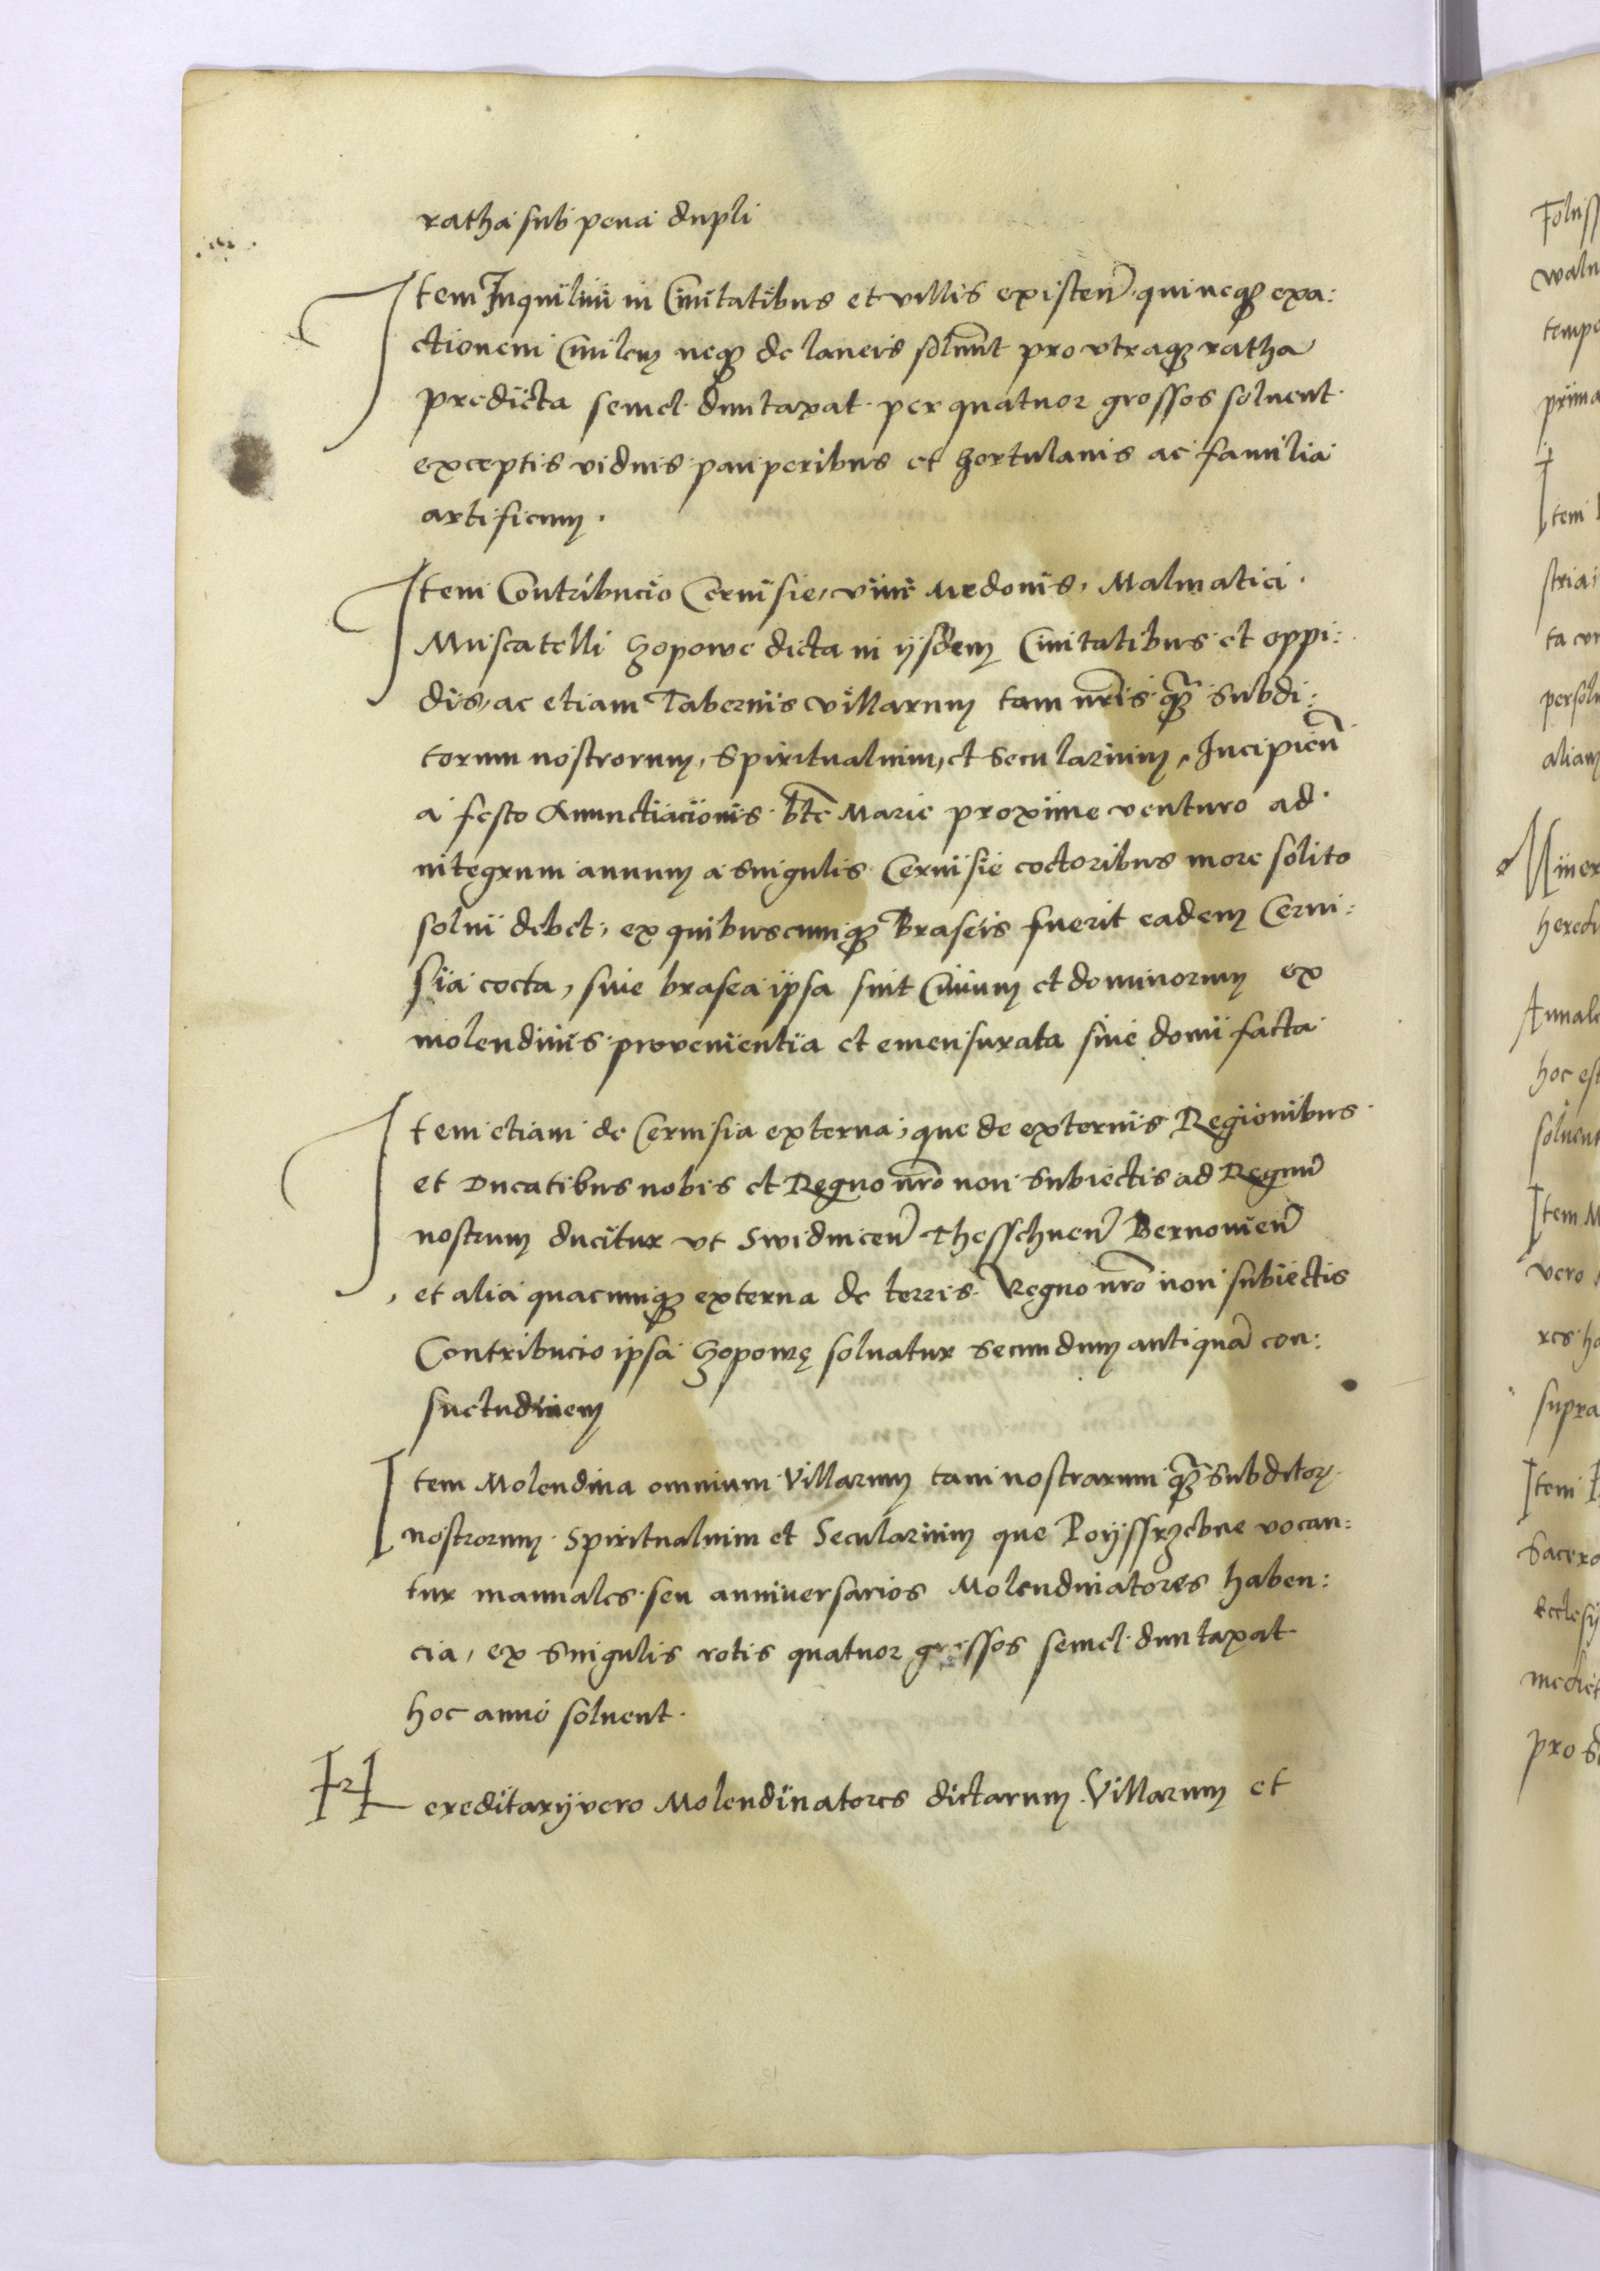 ratha sub pena dupli
Item Inquilini in Civitatibus et villis existen̄ qui neqȝ exa:
ctionem Civilem neqȝ de laneis solvunt pro utraqȝ ratha
predicta semel duntaxat per quatuor grossos solvent
exceptis viduis pauperibus et hortulanis ac familia
artificum.
Item Contribucio Cervisie, vini Medonis, Malmatici
Muscatelli Czopowe dicta in ijsdem Civitatibus et oppi:
dis, ac etiam Tabernis villarum tam nr̄is qȝ̄ Subdi:
torum nostrorum, Spiritualium, et Secularium, Incipien̄
a festo Anunctiacionis bt̄e Marie proxime venturo ad
integrum annum a singulis Cervisie coctoribus more solito
solvi debet, ex quibuscumqȝ Braseis fuerit eadem Cervi:
sia cocta, sive brasea ipsa sint Civium et dominorum ex
molendinis provenientia et emensurata sive domi facta
Item etiam de Cervisia externa, que de externis Regionibus
et Ducatibus nobis et Regno nr̄o non Subiectis ad Regnū
nostrum ducitur ut Swidnicen̄ Thesschnen̄ Bernovien̄
et alia quacumqȝ externa de terris Regno nr̄o non subiectis
Contribucio ipsa Czopowę solvatur secundum antiquā con:
suetudinem
Item Molendina omnium Villarum tam nostrarum qȝ̄ Subditoꝝ
nostrorum Spiritualium et Secularium que Poijssrzebne vocan:
tur manuales seu anniversarios Molendinatores haben:
cia, ex singulis rotis quatuor grossos semel duntaxat
hoc anno solvent.
Hereditarij vero Molendinatores dictarum Villarum et